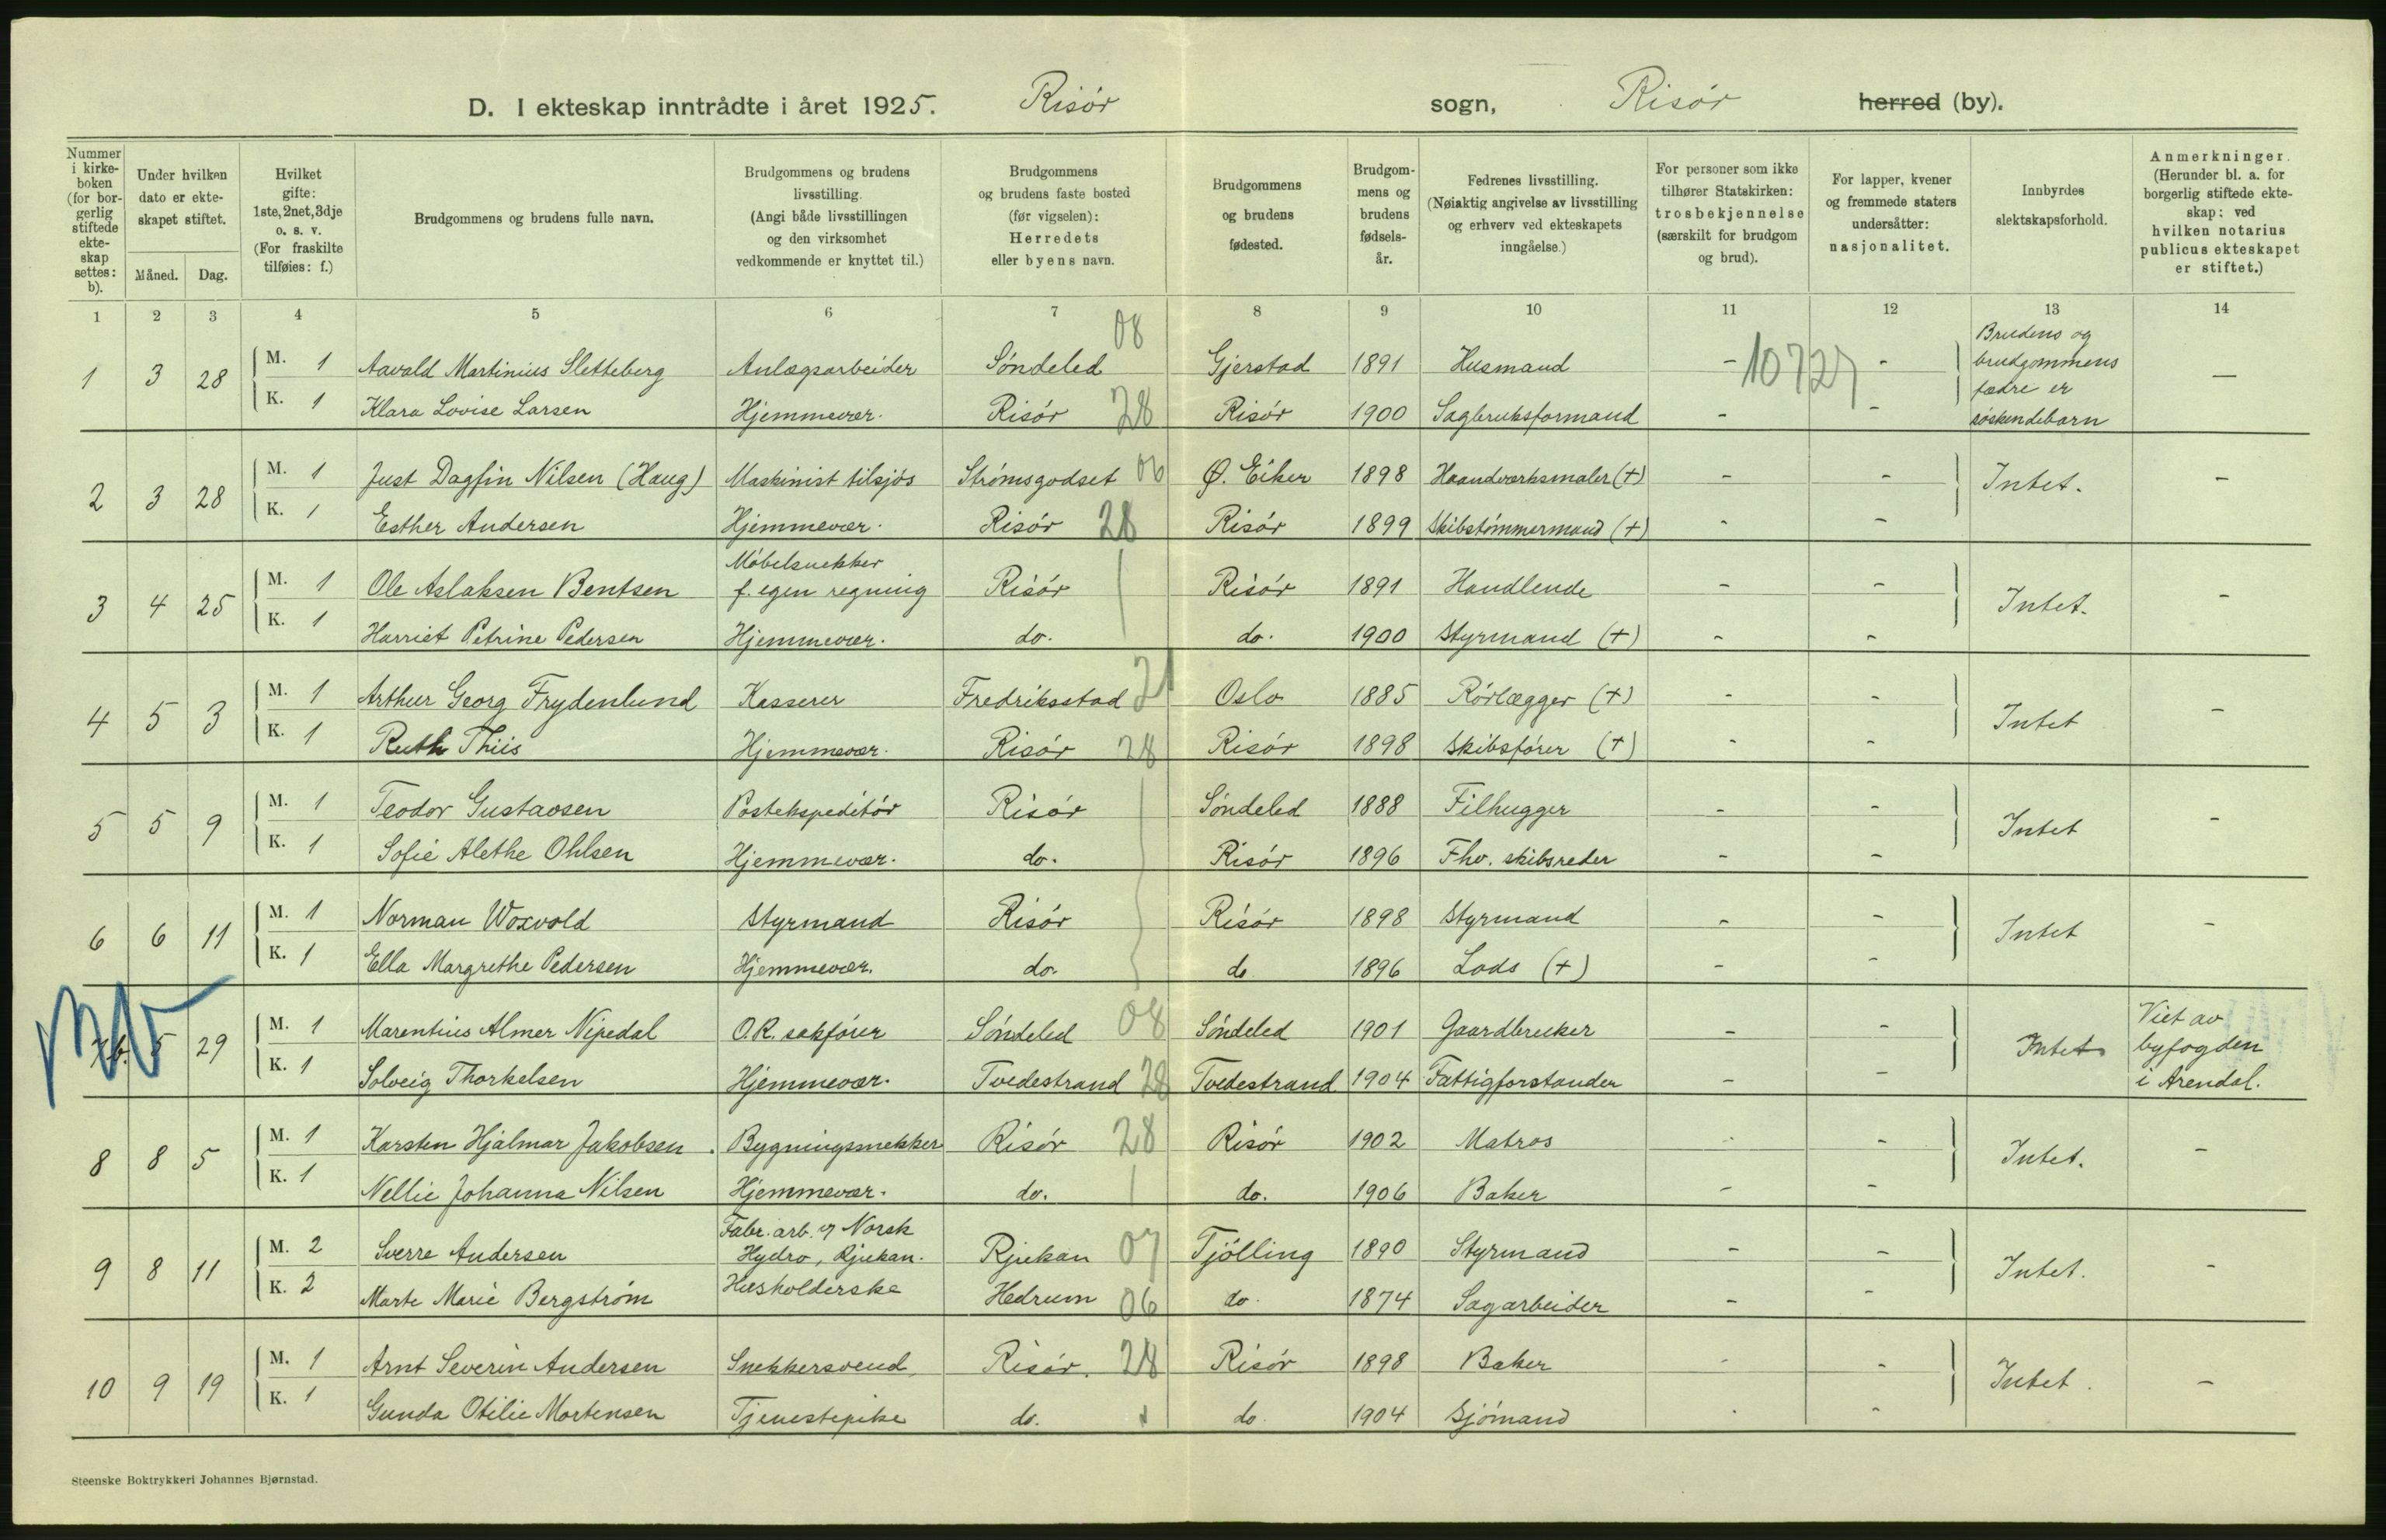 D. I ekteskap inntrådte i året 1925. Risör sogn, Risör herred (by).
Nummer i kirkeboken (for borgerlig stiftede ekteskap settes: b).
Under hvilken dato er ekteskapet stiftet.
Måned. Dag.
Hvilket gifte: 1ste, 2net, 3dje o. s. v. (For fraskilte tilføies: f.)
Brudgommens og brudens fulle navn.
Brudgommens og brudens livsstilling. (Angi både livsstillingen og den virksomhet vedkommende er knyttet til.)
Brudgommens og brudens faste bosted (før vigselen): Herredets eller byens navn.
Brudgommens og brudens fødested.
Brudgommens og brudens fødselsår.
Fedrenes livsstilling. (Nøiaktig angivelse av livsstilling og erhverv ved ekteskapets inngåelse.)
For personer som ikke tilhører Statskirken: trosbekjennelse (særskilt for brudgom og brud).
For lapper, kvener og fremmede staters undersåtter: nasjonalitet.
Innbyrdes slektskapsforhold.
Anmerkninger. (Herunder bl. a. for borgerlig stiftede ekteskap: ved hvilken notarius publicus ekteskapet er stiftet.)
1 2 3 4 5 6 7 8 9 10 11 12 13 14
1 3 28 M. 1 Aavald Martinius Sletteberg Anlægsarbeider Söndeled 08 Gjerstad 1891 Husmand - 10727 - Brudens og brudgommens fædre er söskendebarn —
K. 1 Klara Lovise Larsen Hjemmevær. Risör 28 Risör 1900 Sagbruksformand - -
2 3 28 M. 1 Just Dagfin Nilsen (Haug) Maskinist tilsjös Strömsgodset 06 Ø. Eiker 1898 Haandverksmaler (+) - - Intet. -
K. 1 Esther Andersen Hjemmevær. Risör 28 Risör 1899 Skibstömmermand (+) - -
3 4 25 M. 1 Ole Aslaksen Bentsen Möbelsnekker f. egen regning Risör Risör 1891 Handlende - - Intet. -
K. 1 Harriet Petrine Pedersen Hjemmevær. do. do. 1900 Styrmand (+) - -
4 5 3 M. 1 Arthur Georg Frydenlund Kasserer Fredriksstad 21 Oslo 1885 Rörlægger (+) - - Intet -
K. 1 Ruth Thiis Hjemmevær. Risör 28 Risör 1898 Skibsförer (+) - -
5 5 9 M. 1 Teodor Gustavsen Postekspeditör Risör Söndeled 1888 Filhugger - - Intet -
K. 1 Sofie Alethe Ohlsen Hjemmevær. do. Risör 1896 Fhv. skibsreder - -
6 6 11 M. 1 Norman Woxvold Styrmand Risör Risör 1898 Styrmand - - Intet -
K. 1 Ella Margrethe Pedersen Hjemmevær. do. do. 1896 Lods (+) - -
b. 5 29 M. 1 Marentius Almer Nipedal O.R. sakförer Söndeled 08 Söndeled 1901 Gaardbruker - - Intet Viet av byfogden i Arendal.
K. 1 Solveig Thorkelsen Hjemmevær. Tvedestrand 28 Tvedestrand 1904 Fattigforstander - -
8 8 5 M. 1 Karsten Hjalmar Jakobsen. Bygningsnekker Risör 28 Risör 1902 Matros - - Intet. -
K. 1 Nellie Johanna Nilsen Hjemmevær. do. do. 1906 Baker - -
9 8 11 M. 2 Sverre Andersen Fabr. arb. v Norsk Hydro, Rjukan. Rjukan 07 Tjölling 1890 Styrmand - - Intet. -
K. 2 Marte Marie Bergström Husholderske Hedrum 06 do. 1874 Sagarbeider - -
10 9 19 M. 1 Arnt Severin Andersen Snekkersvend Risör. 28 Risör 1898 Baker - - Intet. -
K. 1 Gunda Otilie Mortensen Tjenestepike do. do. 1904 Sjömand - -
Steenske Boktrykkeri Johannes Bjørnstad.